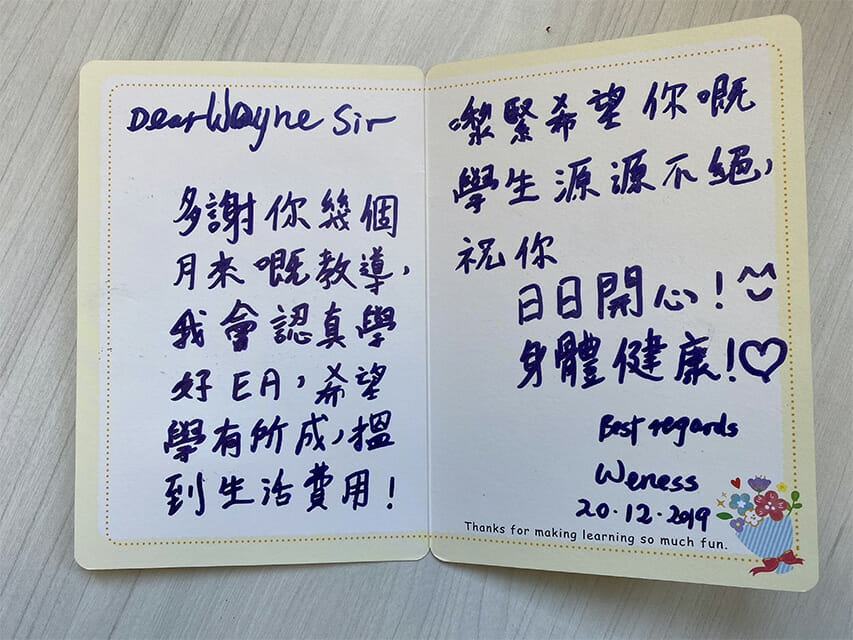 Dear Wayne Sir
多謝你幾個
月來嘅教導，
我會認真學
好EA，希望
學有所成，搵
到生活費用！
嚟緊希望你嘅
學生源源不絕，
祝你
日日開心！
身體健康！♡
Best regards
Weness
20.12.2019
Thanks for making learning so much fun.